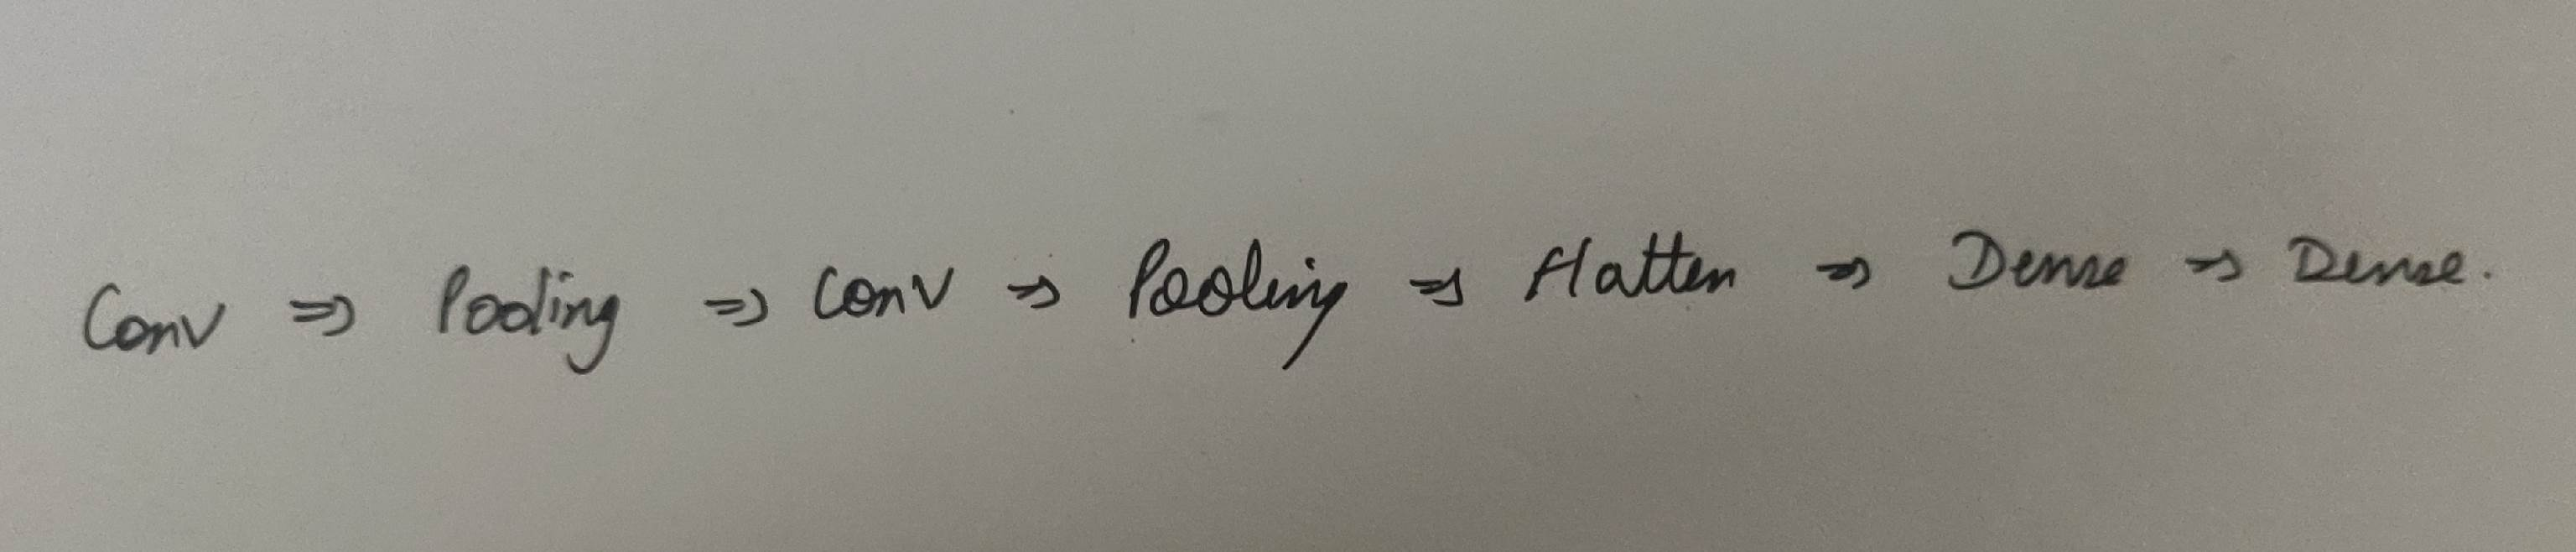 Conv => Pooling => Conv => Pooling => Flatten => Dense => Dense.